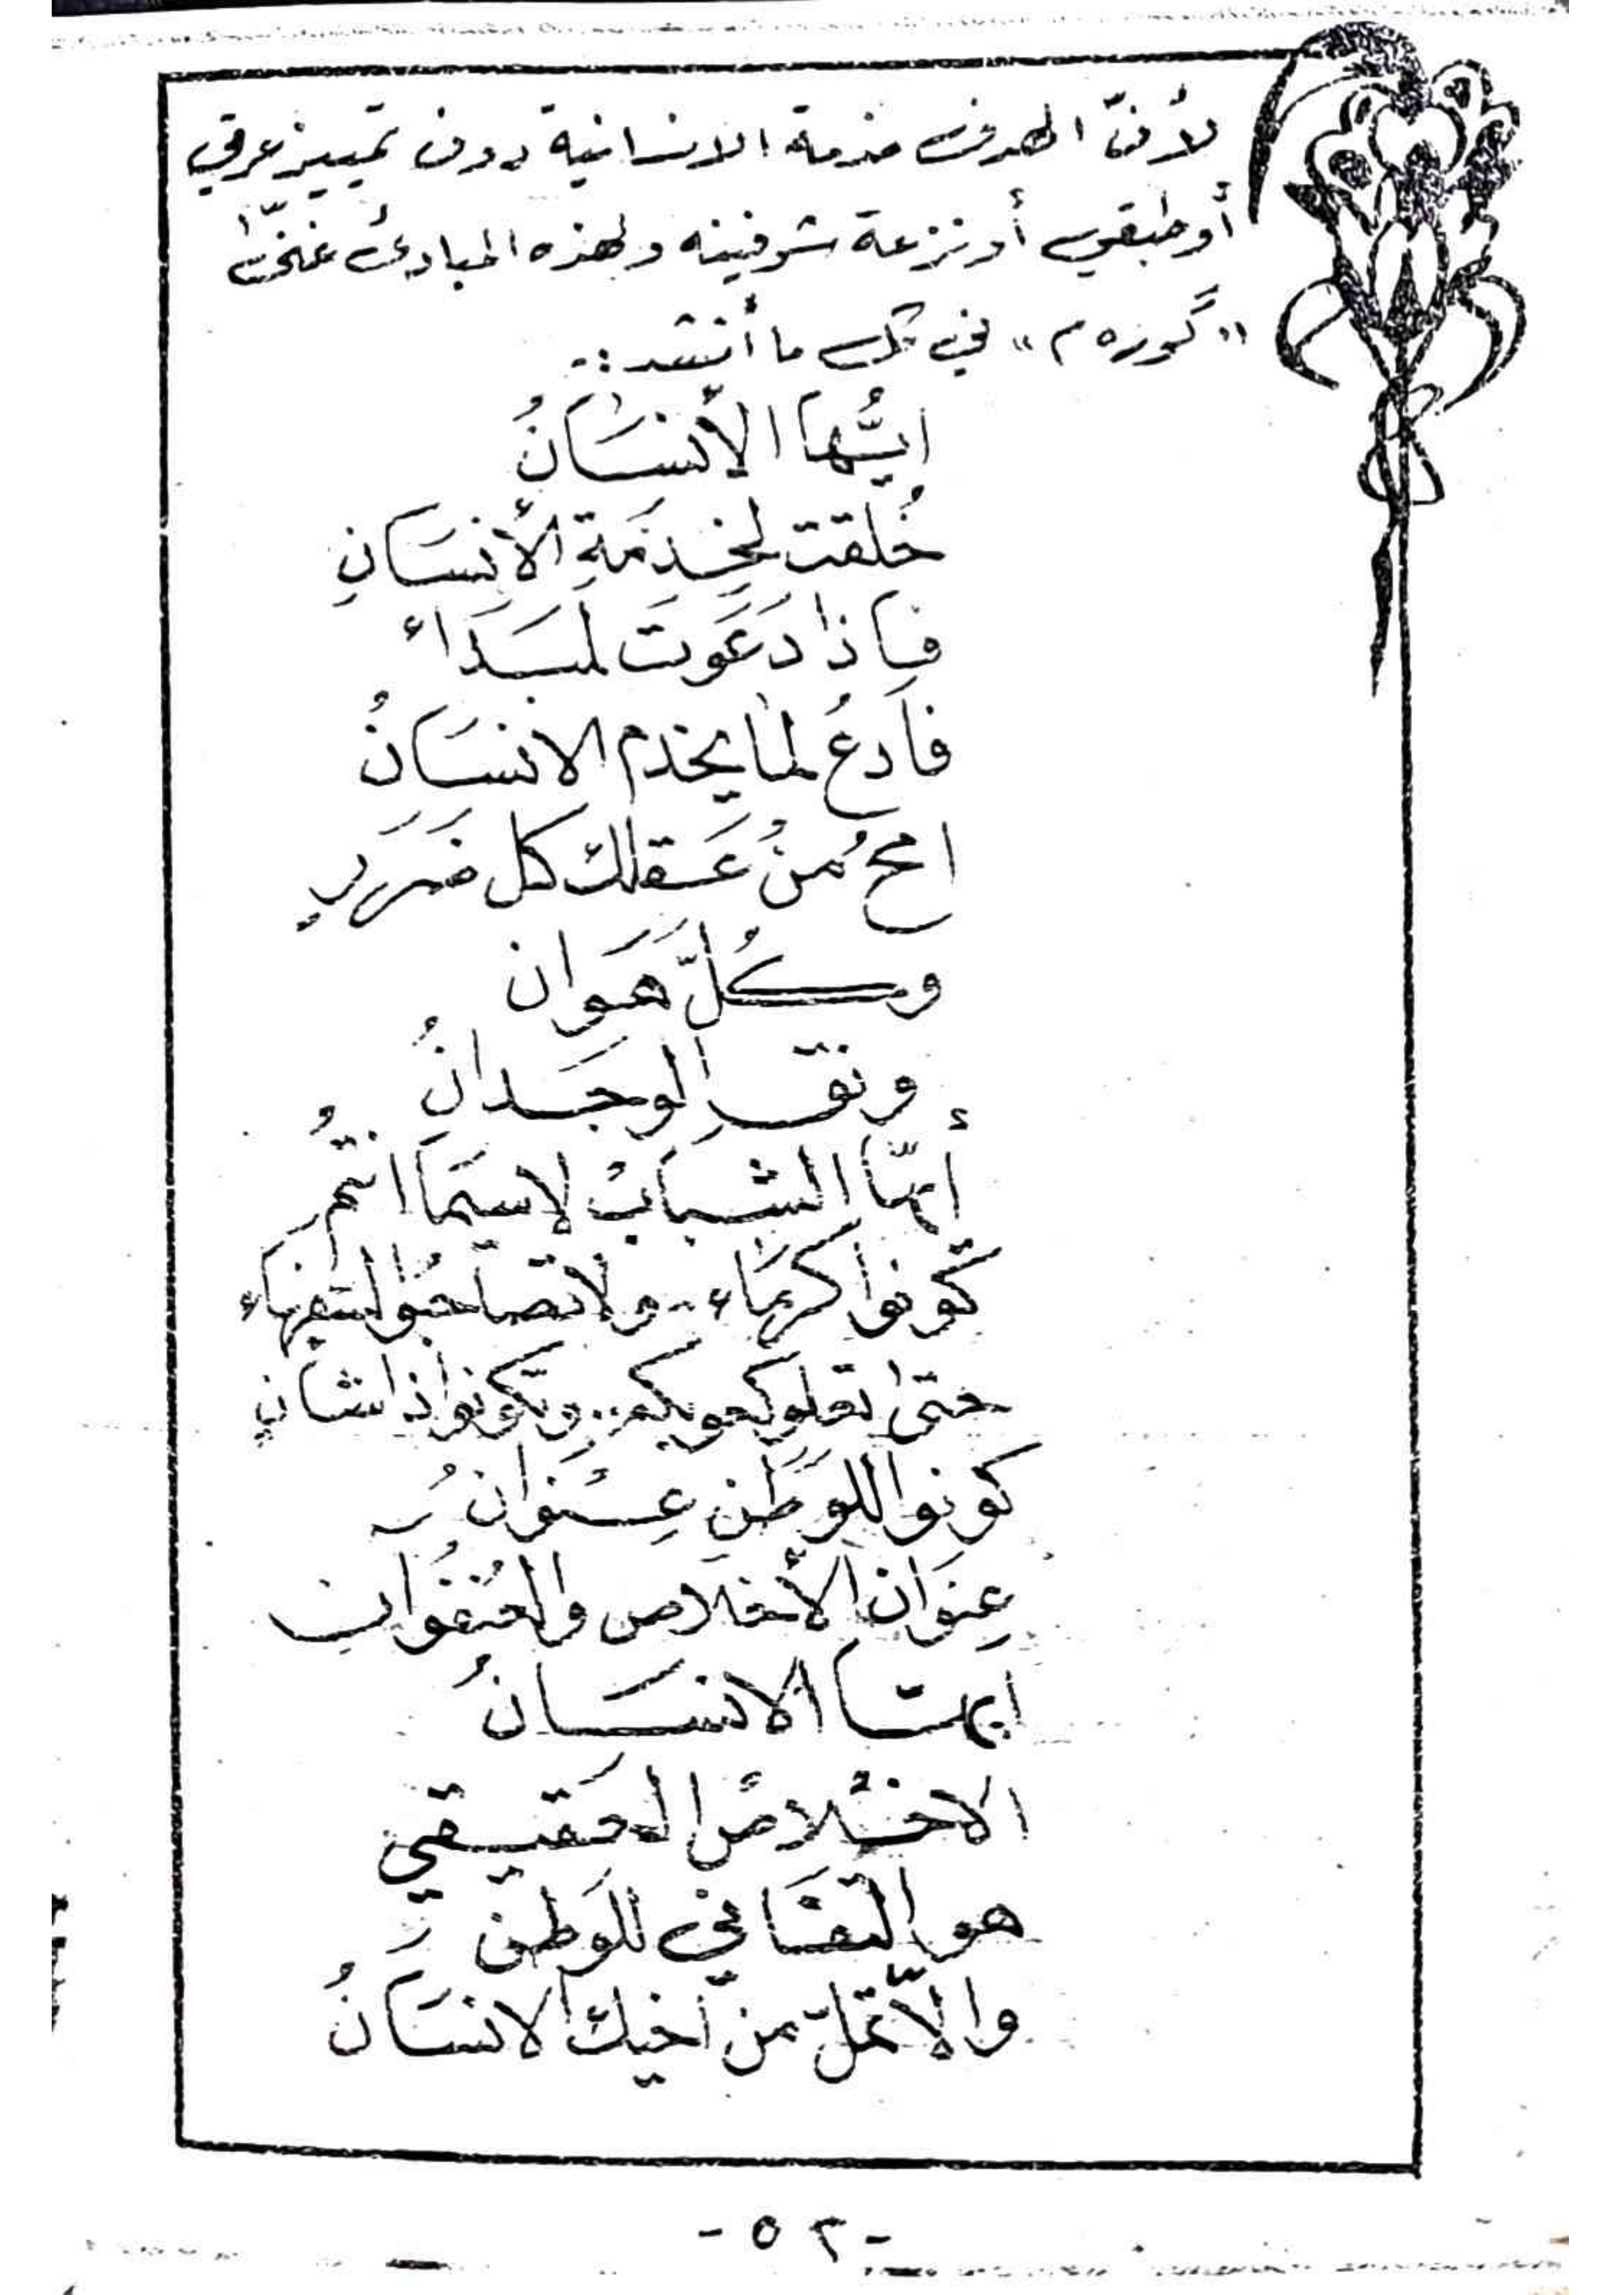 لأنّ الهدف خدمة الانسانية دون تمييز عرقي
أو طبقي أو نزعة شوفينه ولهذه المبادئ
«گوره م» في كل ما أنشد :-
ايُّها الأنسَانُ
خُلقت لخِدمَةِ الأنسَانِ
فاذا دَعَوتَ لمبَدَاء
فادعُ لما يخدم الانسَانُ
امحُ منُ عَقلك كل ضَرَرٍ
وكُلّ هَوَان
ونقِ الوجَدانُ
أيّها الشبابُ لاسيمَا انتمُ
كونوا كرمَاء .. ولا تصاحبُوا السفهاء
حتى تعلو كعوبكم .. وتكونوا ذا شانٍ
كونوا للوَطَنِ عِنوَانُ
عِنوَان الأخلاص والعُنفُوَان
ايهَا الانسَانُ
الاخلاصُ الحقيقي
هو التفَاني للوَطن
والاّ تملّ من أخيك الانسَانُ
- ٥٢ -